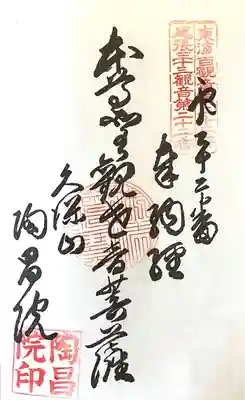 東海百観音
尾張三十三観音第二十二番
二十二番
奉納経
本尊聖観世音菩薩
久保山
陶昌院
陶昌院印